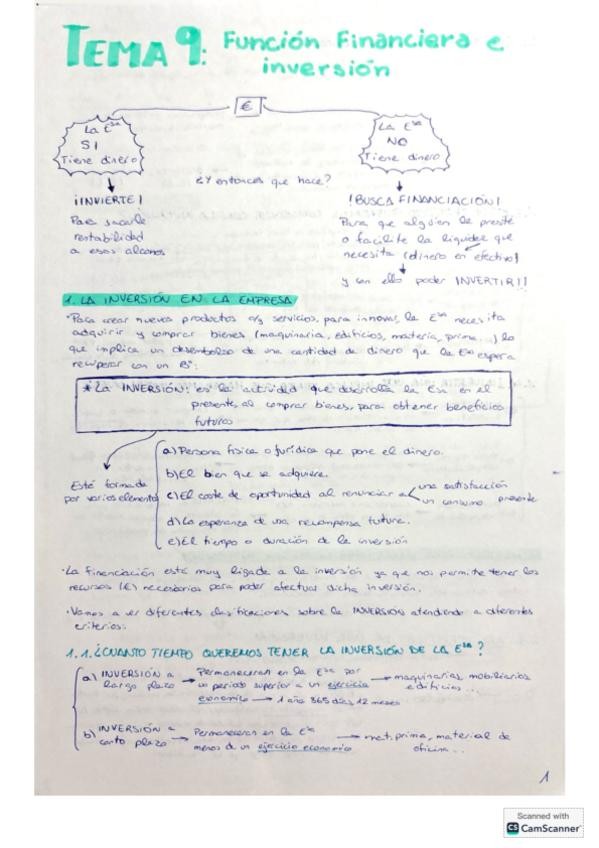 TEMA 9: Función Financiera e
inversión
€
La Esa
SI
Tiene dinero
La Esa
NO
Tiene dinero
¿Y entonces que hace?
¡INVIERTE!
Para sacarle
rentabilidad
a esos ahorros
¡BUSCA FINANCIACIÓN!
Para que alguien le preste
o facilite la liquidez que
necesita (dinero en efectivo)
y con ello poder INVERTIR!!
1. LA INVERSIÓN EN LA EMPRESA
·Para crear nuevos productos o/y servicios, para innovar, la Esa necesita
adquirir y comprar bienes (maquinaria, edificios, materia, prima...) lo
que implica un desembolso de una cantidad de dinero que la Esa espera
recuperar con un Bº:
*La INVERSIÓN: es la actividad que desarrolla la Esa en el
presente, al comprar bienes, para obtener beneficios
futuros
Está formada
por varios elementos
a) Persona física o jurídica que pone el dinero.
b) El bien que se adquiere.
c) El coste de oportunidad al renunciar a
una satisfacción
un consumo presente
d) La esperanza de una recompensa futura.
e) El tiempo o duración de la inversión
·La financiación está muy ligada a la inversión ya que nos permite tener los
recursos (€) necesarios para poder efectuar dicha inversión.
·Vamos a ver diferentes clasificaciones sobre la INVERSIÓN atendiendo a diferentes
criterios:
1.1. ¿CUANTO TIEMPO QUEREMOS TENER LA INVERSIÓN DE LA Esa?
a) INVERSIÓN a
largo plazo
Permaneceran en la Esa por
un periodo superior a un ejercicio
economico → 1 año 365 días, 12 meses
maquinarias, mobiliarios
edificios...
b) INVERSIÓN a
corto plazo
Permaneceran en la Esa
menos de un ejercicio economico
mat. prima, material de
oficina...
1
Scanned with
CS CamScanner